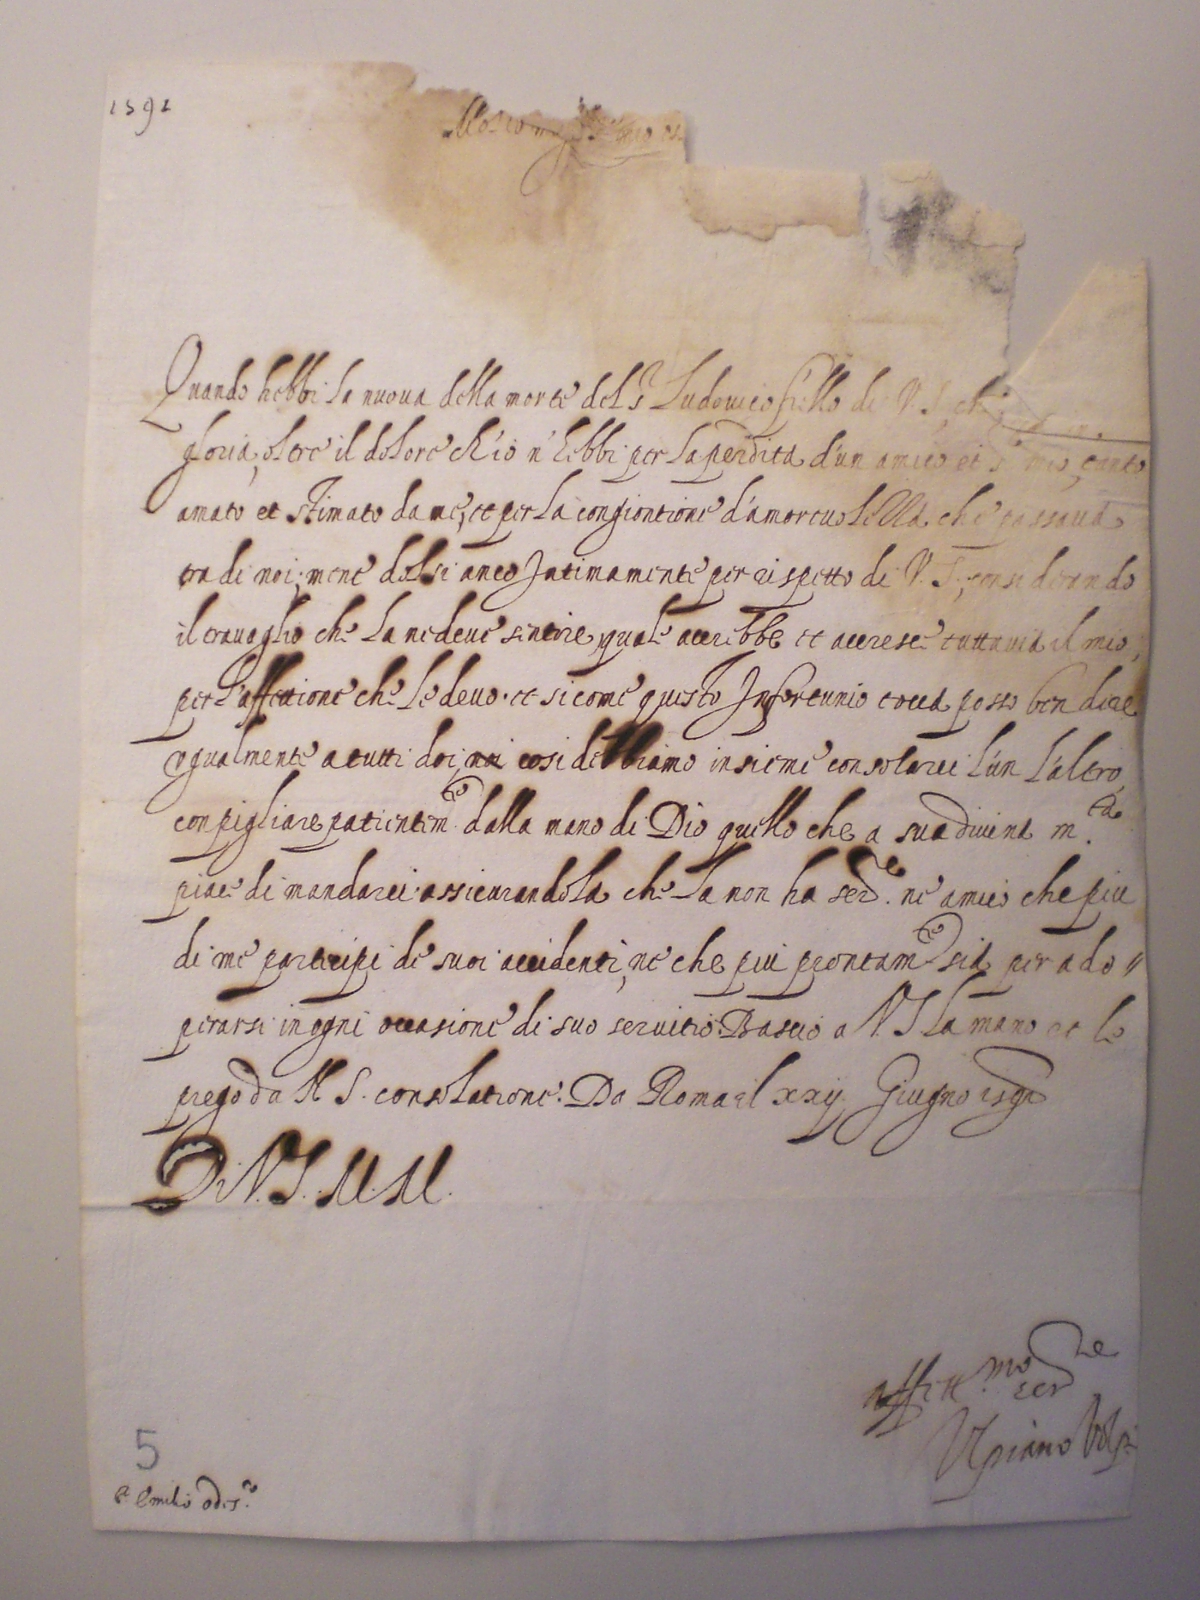 1591
Quando hebbi la nuova della morte del Sr Ludovico frello di V. S. ch'
gloria, oltre il dolore ch'io n'hebbi per la perdita d'un amico et Sr mio, tanto
amato et stimato da me, et per la congiontione d'amorevolezza che passava
tra di noi; mene dolsi anco Intimamente per rispetto di V. S. considerando
il travaglio che la ne deve sentire, quale accrebbe et accresce tuttavia il mio,
per l'affettione che le devo. et si come questo Infortunio tocca posso ben dire
ugualmente a tutti doi, noi cosi debbiamo insieme consolarci l'un l'altro,
con pigliare patientemte dalla mano di Dio quello che a sua divina m.tà
piace di mandarci. assicurandola che la non ha serre. ne amico che piu
di me participi de suoi accidenti, ne che piu prontamte sia per ado//
perarsi in ogni occasione di suo servitio. Bascio a V. S. la mano et le
prego da N. S. consolatione. Da Roma il xxij. Giugno 1591
Di V. S. M. M.
affett.mo serre
Ulpiano Volpi
5
Sr Emilio odes.co